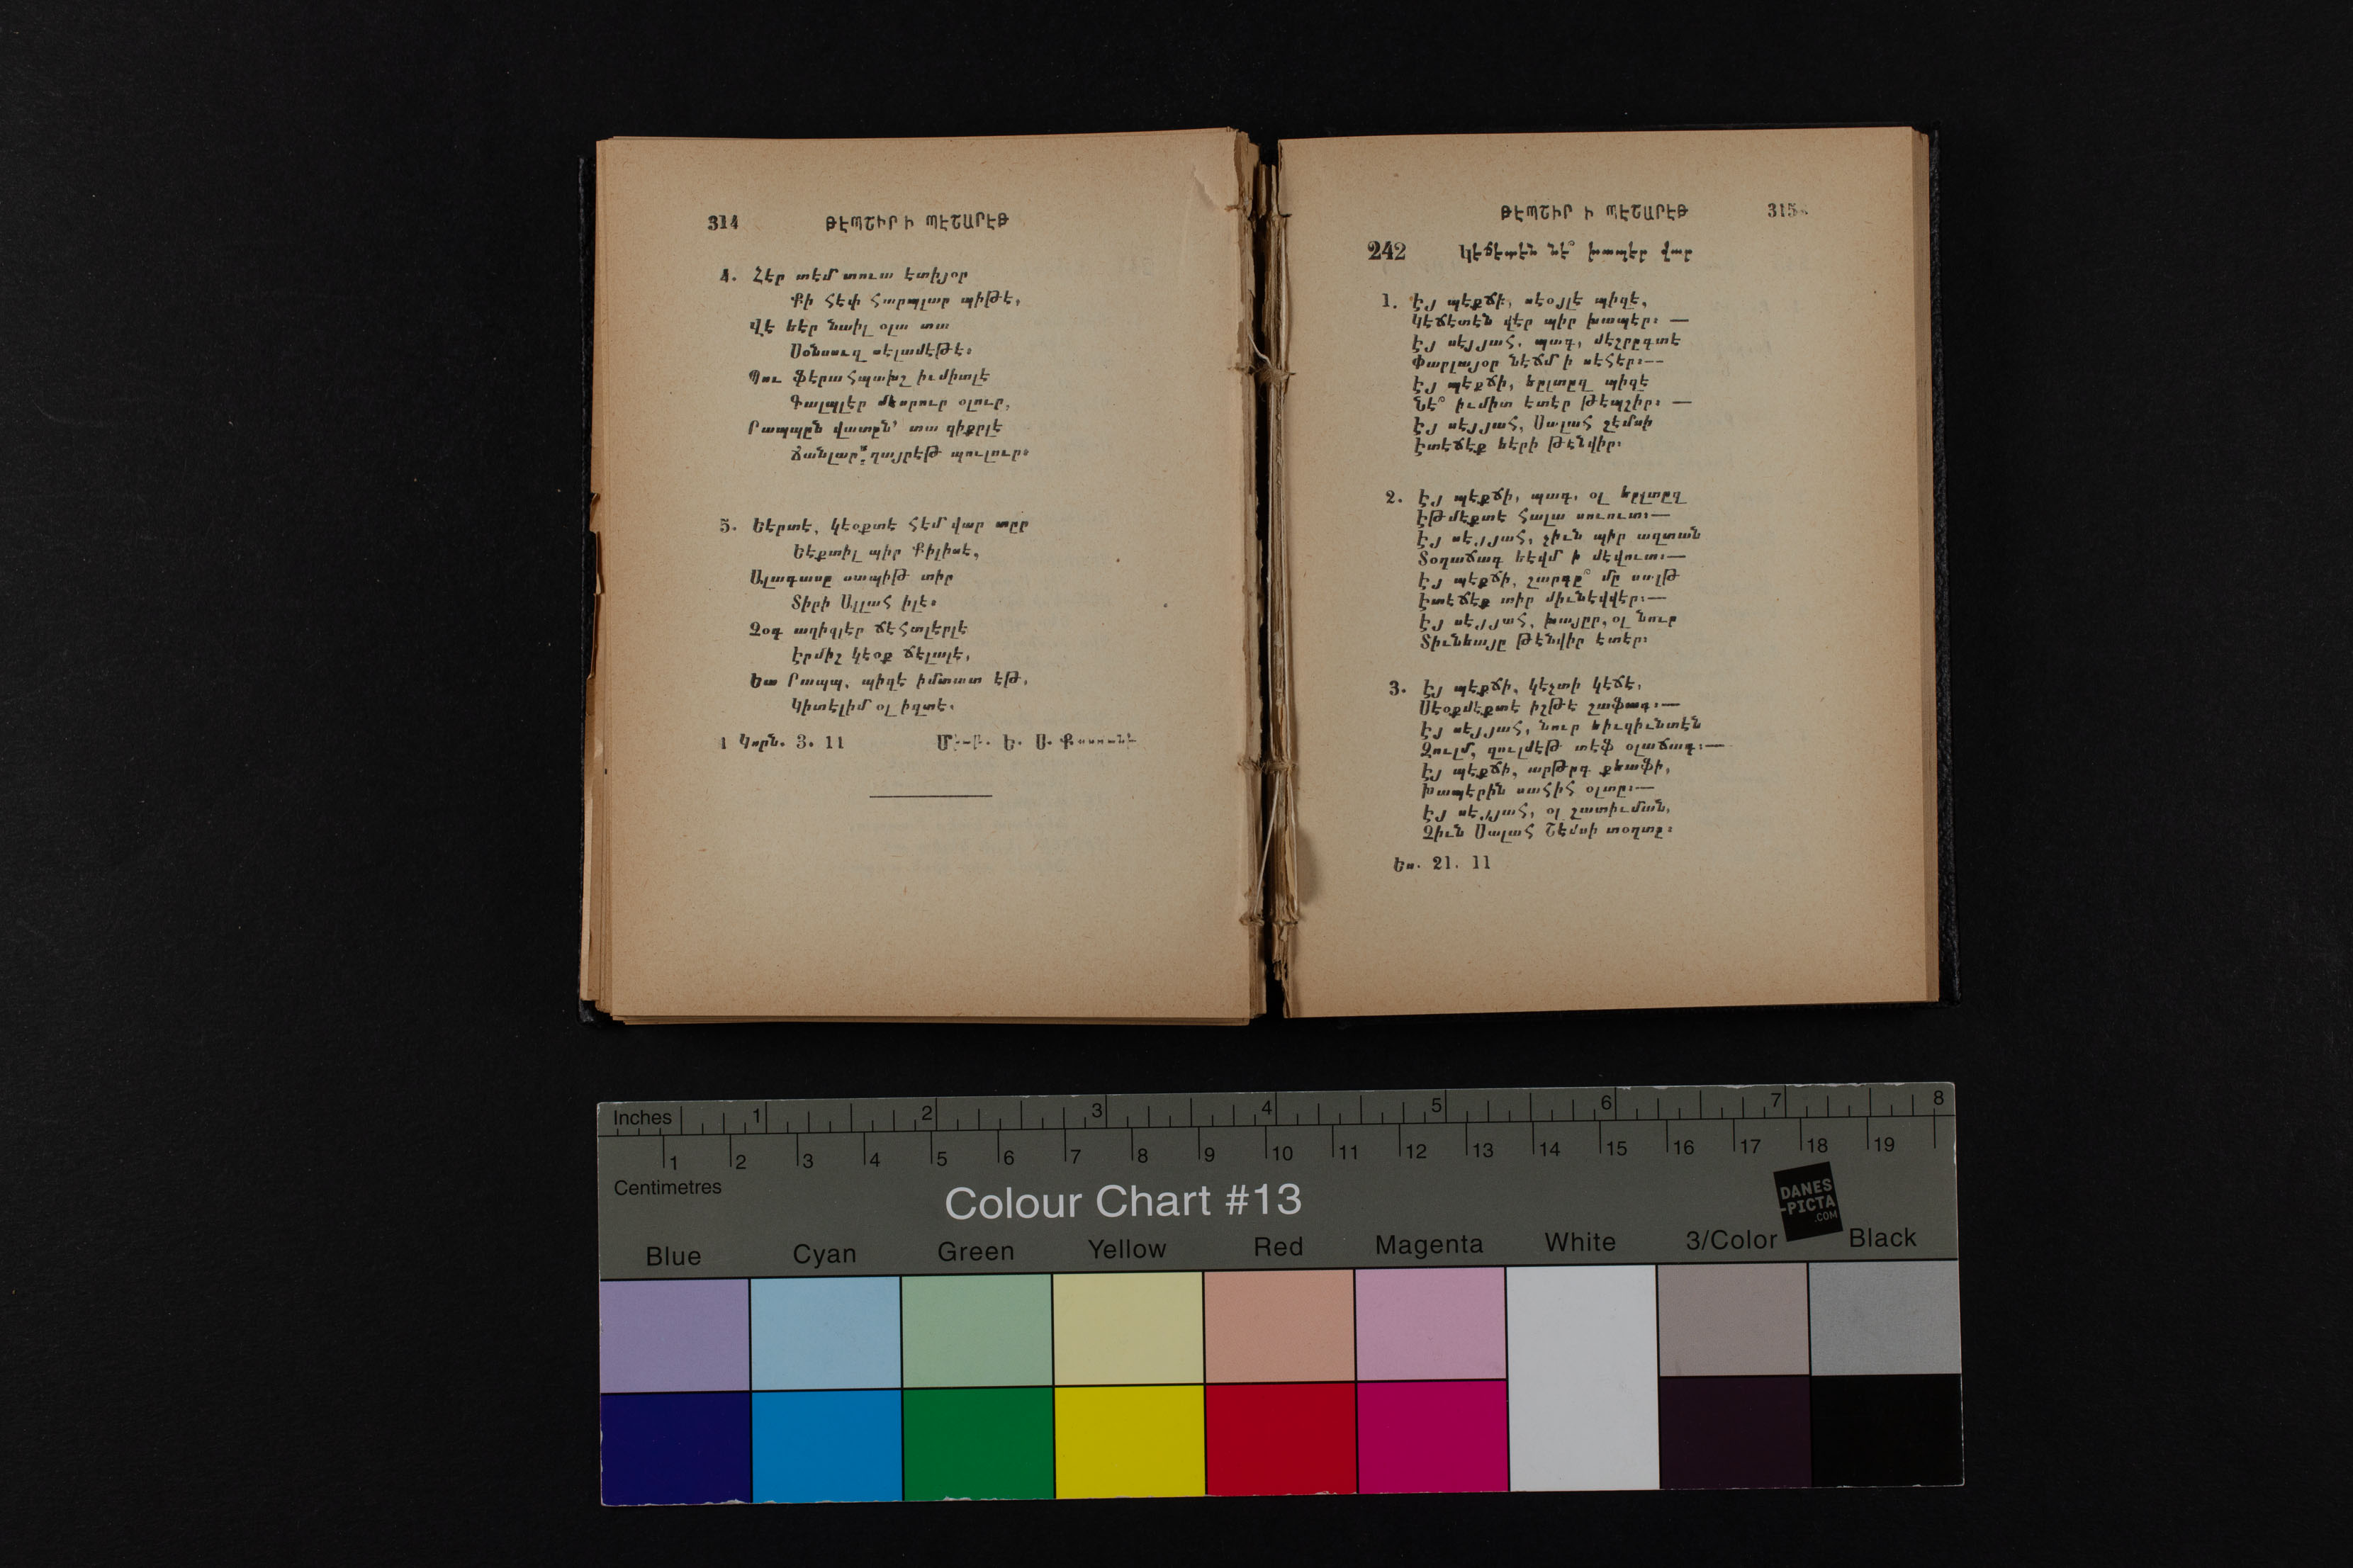 314 ԹԷՊՇԻՐ Ի ՊԷՇԱՐԷԹ
4. Հէր տէմ տուա էտիյօր
Քի հէփ հարպլար պիթէ,
Վէ եէր նաիլ օլա տա
Սօնսուզ սէլամէթէ։
Պու ֆէրահպախշ իւմիտլէ
Գալպլէր մեսրուր օլուր,
Րապպըն վատըն՚ տա զիքրլէ
Ճանլար ղայրէթ պուլուր։
5. Եէրտէ, կէօքտէ հէմ վար տըր
Եէքտիլ պիր Քիլիսէ,
Ալագասը սապիթ տիր
Տիրի Ալլահ իլէ։
Չօգ ազիզլէր ճէհտլէրլէ
Էրմիշ կէօք ճէլալէ,
Եա Րապպ, պիզէ իմտատ էթ,
Կիտէլիմ օլ իզտէ։
1 Կորն. 3. 11 Ե. Ս.
ԹԷՊՇԻՐ Ի ՊԷՇԱՐԷԹ 315
242 Կէճէտէն նէ՞ խապէր վար
1. Էյ պէքճի, սէօյլէ պիզէ,
Կէճէտէն վէր պիր խապէր։ —
Էյ սէյյահ, պագ, մէշրըգտէ
Փարլայօր նէճմ ի սէհէր։—
Էյ պէքճի, եըլտըզ պիզէ
Նէ՞ իւմիտ էտէր թէպշիր։ —
Էյ սէյյահ, Սալահ շէմսի
Էտէճէք եէրի թէնվիր։
2. Էյ պէքճի, պագ, օլ եըլտըզ
Էթմէքտէ հալա սուուտ։—
Էյ սէյյահ, շիւն պիր աղտան
Տօղաճագ եէվմ ի մէվուտ։—
Էյ պէքճի, շարգը՞ մը սալթ
Էտէճէք տիր միւնէվվէր։—
Էյ սէյյահ, խայըր, օլ նուր
Տիւնեայը թէնվիր էտէր։
3. Էյ պէքճի, կէչտի կէճէ,
Սէօքմէքտէ իշթէ շաֆագ։—
Էյ սէյյահ, նուր եիւզիւնտէն
Զուլմ, զուլմէթ տէֆ օլաճագ։—
Էյ պէքճի, արթըգ քեաֆի,
Խապէրին սահիհ օլտը։—
Էյ սէյյահ, օլ շատիւման,
Չիւն Սալահ Շէմսի տօղտը։
Ես. 21. 11
Inches 1 2 3 4 5 6 7 8
1 2 3 4 5 6 7 8 9 10 11 12 13 14 15 16 17 18 19
Centimetres
Colour Chart #13
DANES
-PICTA
.COM
Blue Cyan Green Yellow Red Magenta White 3/Color Black